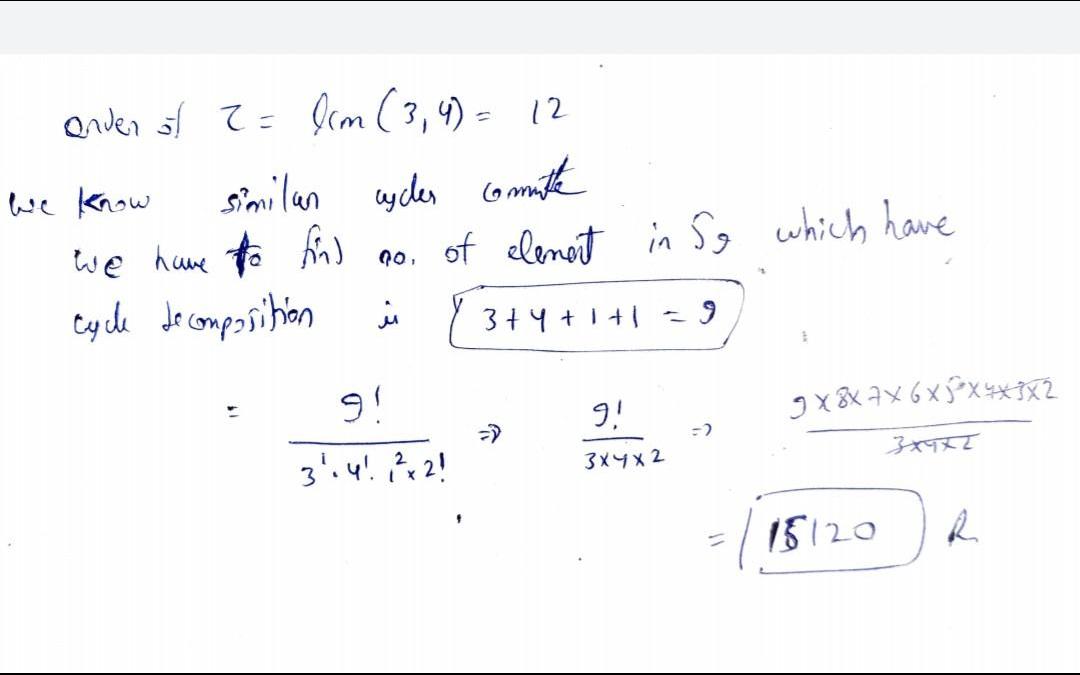 order of τ = lcm (3,4) = 12
we know similar cycles commute
we have to find no. of element in S9 which have
cycle decomposition is 3+4+1+1 = 9
= 9! / 3¹. 4¹. 1² × 2! => 9! / 3×4×2 => 9×8×7×6×5×4×3×2 / 3×4×2
= 15120